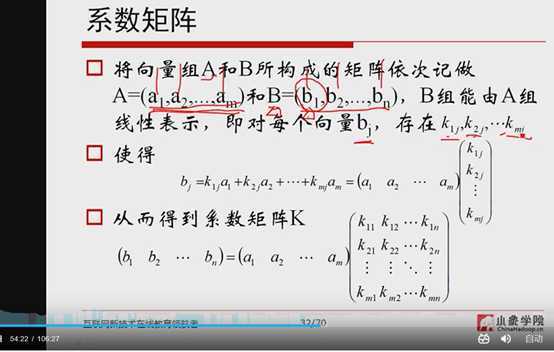 系数矩阵
将向量组A和B所构成的矩阵依次记做
A=(a1,a2,...,am)和B=(b1,b2,...,bn)，B组能由A组
线性表示，即对每个向量bj，存在k1j,k2j,…kmj
使得
bj=k1ja1+k2ja2+⋯+kmjam=(a1 a2 ⋯ am)(k1j k2j ⋮ kmj)
从而得到系数矩阵K
(b1 b2 ⋯ bn)=(a1 a2 ⋯ am)
k11 k12 ⋯ k1n
k21 k22 ⋯ k2n
⋮ ⋮ ⋱ ⋮
km1 km2 ⋯ kmn
互联网新技术在线教育领航者
32/70
小象学院
ChinaHadoop.cn
54:22 / 106:27
自动